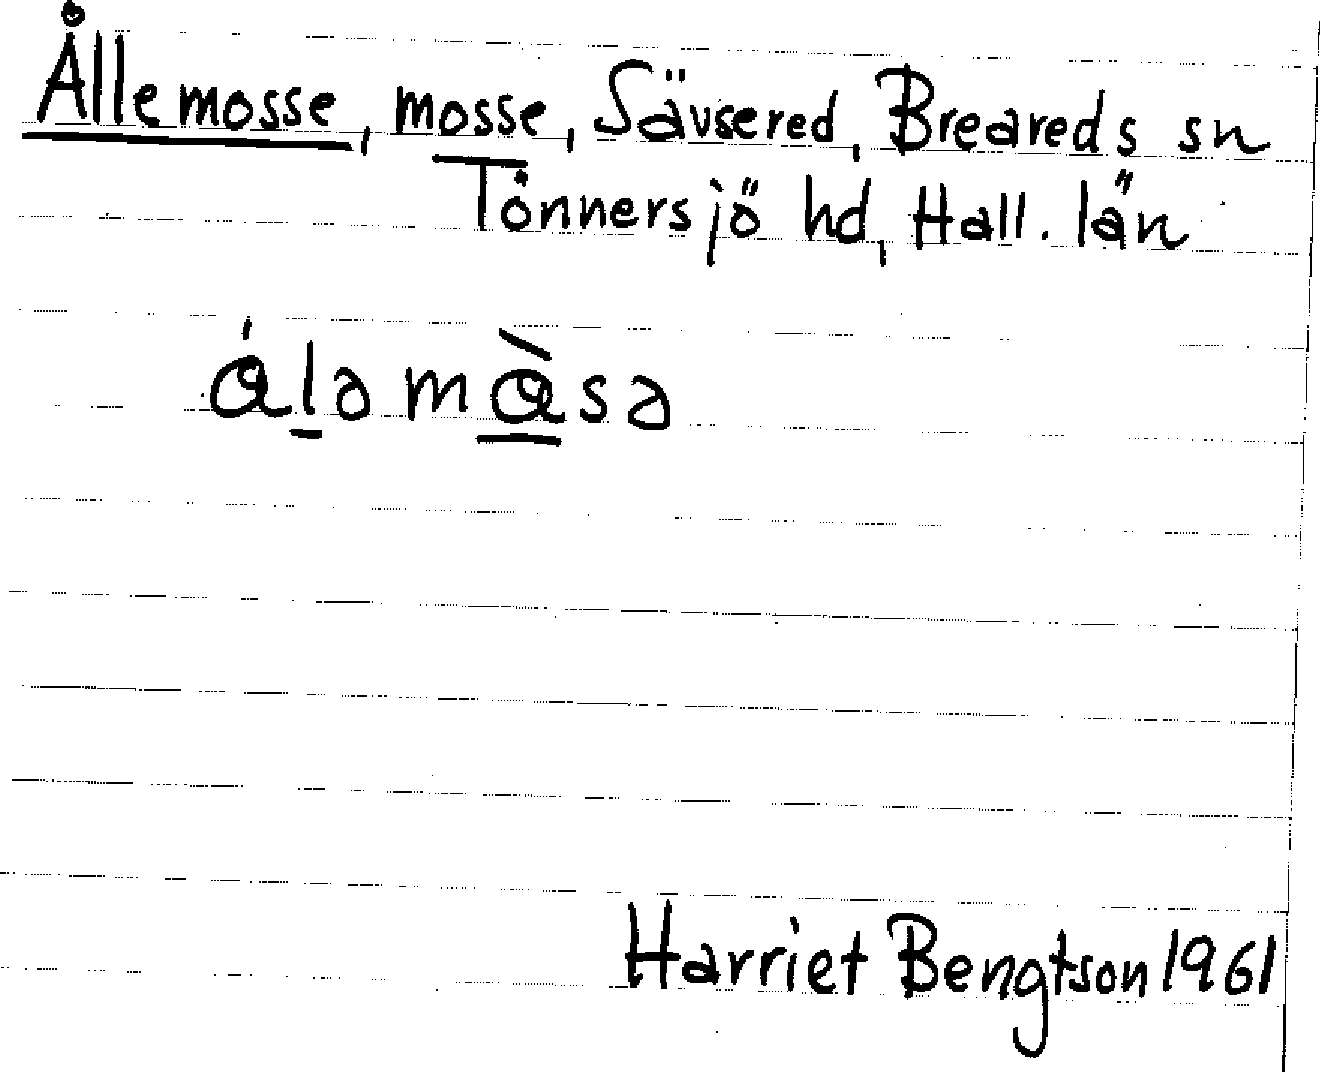 Ållemosse, mosse, Sävsered, Breareds sn
Tönnersjö hd, Hall. län
ál̠əmɑ̠̀sə
Harriet Bengtson 1961